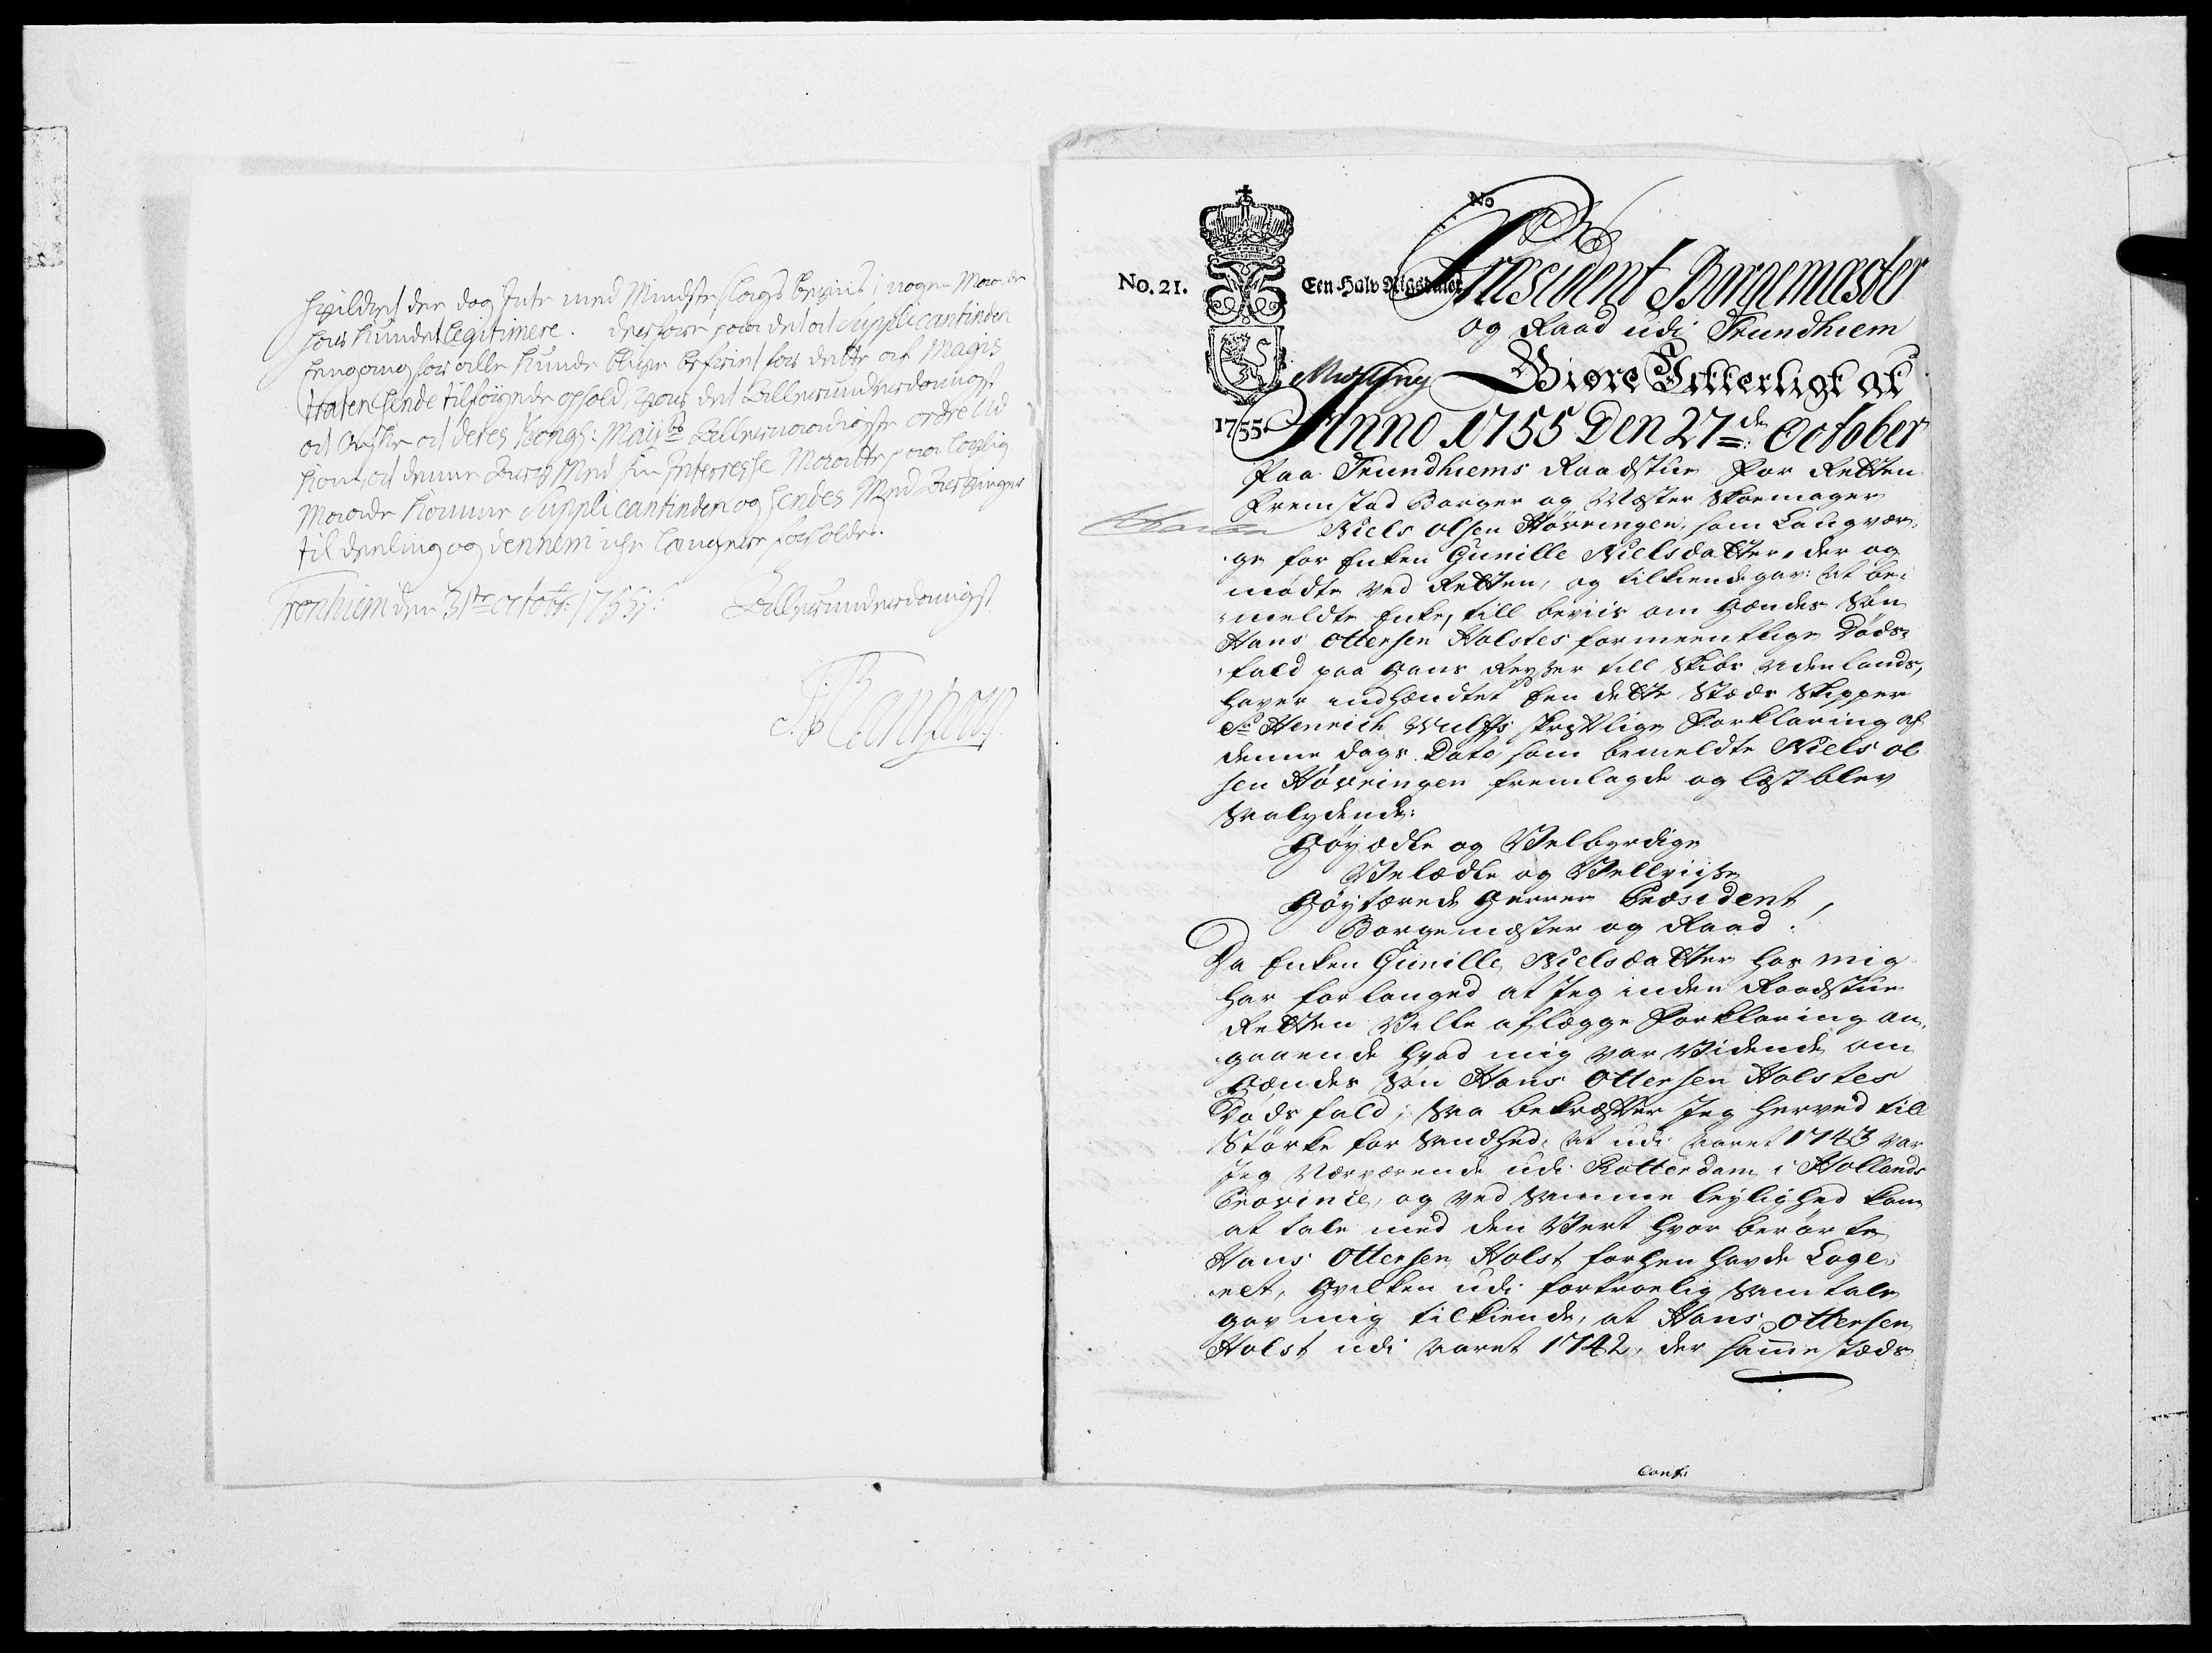 hvildret der dog Intet med Mindste slags beviis i nogen Maade
har kundet legitimere. derfore paa det at Supplicantinden
eengang for alle kunde blive befriet for dette af Magis
traten hende tilføyede ophold, har det Allerunderdanigst
at Ønske at deres Kongl: Mayts Allernaadigste ordre Ud
kom, at denne Arv Med sin Interesse Maatte paa lovlig
Maade komme Supplicantinden og hendes Med Arvinger
til deeling og dennem icke længere forholdes.
Tronhiem den 31te octobr: 1755. Allerunderdanigst
No
No. 21.
Een Halv Rigsdaler
Præsident Borgemæster
og Raad udi Trundhiem
Giøre Vitterligt at
1755.
Anno 1755 Den 27de October
Paa Trundhiems Raadstue for Retten
Fremstod Borger og Mæster Skoemager
Niels Olsen Høvringen, som Laugvær-
ge for Enken Gunille Nielsdatter, der og
mødte ved Retten, og tilkiendegav: At be-
meldte Enke, till beviis om Hendes Søn
Hans Ottersen Holstes formeentlige Døds-
fald paa Hans Reyser till Skibs udenlands,
haver indhændtet Een dette Stæds Skipper
Sr Henrich Wulffs skriftlige Forklaring af
denne Dags Dato, som bemeldte Niels Ol
sen Høvringen fremlagde og læst blev
Saalydende:
Høyædle og Velbyrdige
Velædle og Vellviise
Høystærede Herrer Præsident,
Borgemæster og Raad:
Da Enken Gunille Nielsdatter hos mig
har forlanged at Jeg inden Raadstue
Retten Ville aflægge Forklaring an-
gaaende hvad mig var Vidende om
Hendes Søn Hans Ottersen Holstes
Døds fald; Saa bekræfter Jeg herved till
Størke for Sandhed: At udi Aaret 1743 var
Jeg Nærværende udi Rotterdam i Hollands
Province, og ved Samme leylighed kom
at tale med den Vert hvor berørte
Hans Ottersen Holst forhen havde Loge-
ret, Hvilken udi fortroelig Samtale
gav mig tilkiende, at Hans Ottersen
Holst udi Aaret 1742, der samme stæds
Conf: